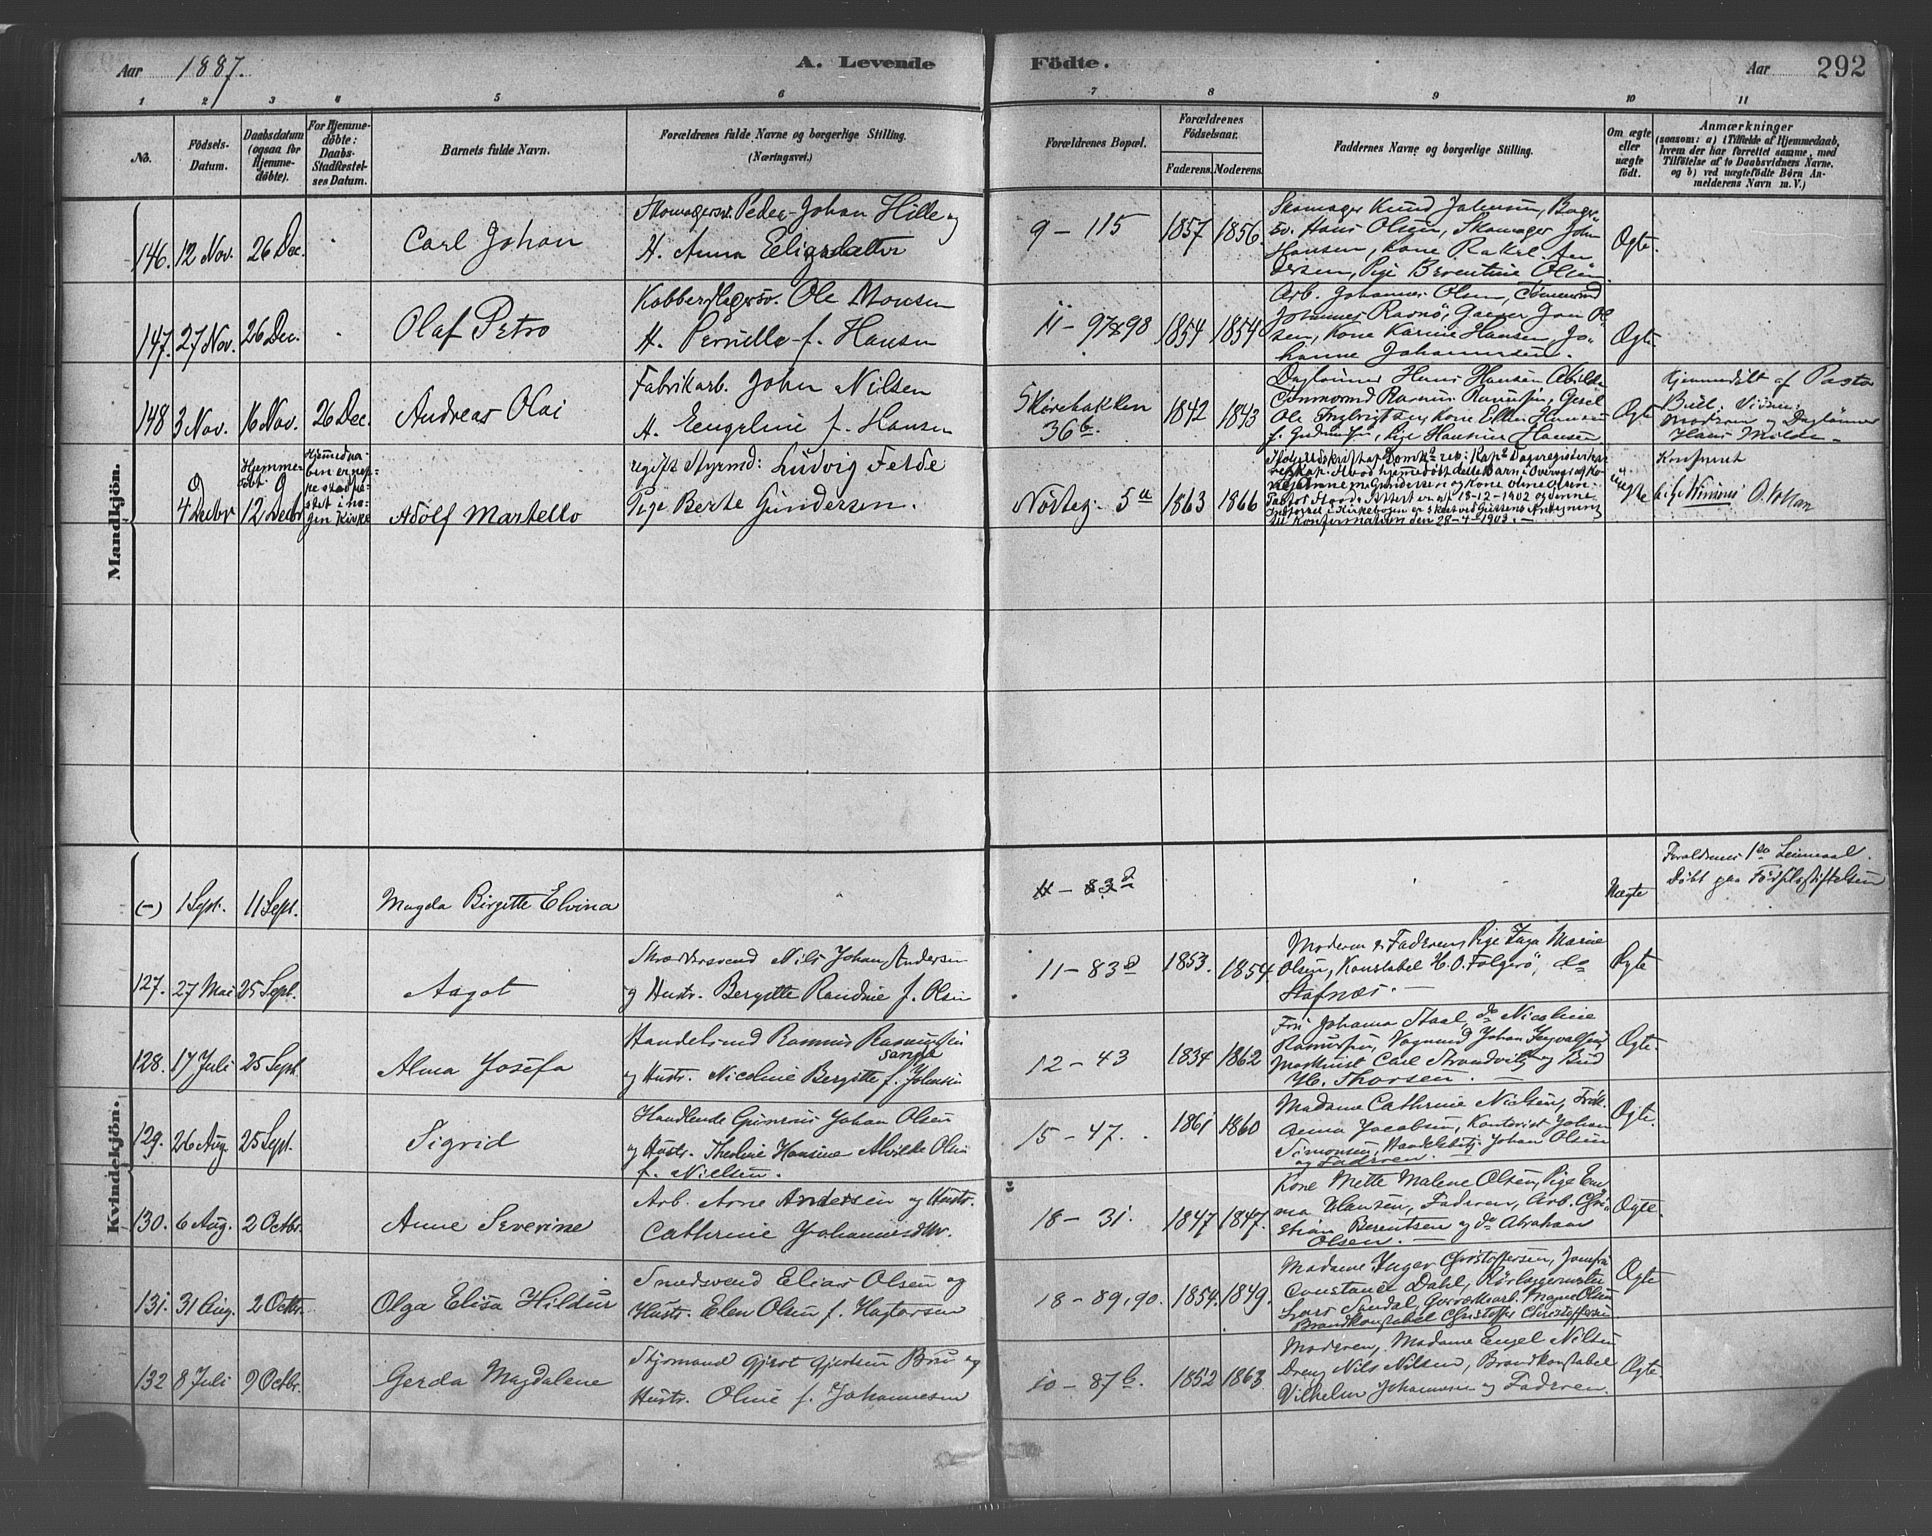 Aar 1887. A. Levende Födte. Aar 292
1 2 3 4 5 6 7 8 9 10 11
No.
Födsels-
Datum.
Daabsdatum
(ogsaa for
Hjemme-
döbte).
For Hjemme-
döbte:
Daabs-
Stadfæstel-
ses Datum.
Barnets fulde Navn.
Forældrenes fulde Navne og borgerlige Stilling.
(Næringsvei.)
Forældrenes Bopæl.
Forældrenes
Födselsaar.
Faderens. Moderens.
Faddernes Navne og borgerlige Stilling.
Om ægte
eller
uægte
födt.
Anmærkninger
(saasom: a) i Tilfælde af Hjemmedaab,
hvem der har forrettet samme, med
Tilföielse af to Daabsvidners Navne.
og b) ved uægtefödte Börn An-
melderens Navn m. V.)
Mandkjön.
146. 12 Nov. 26 Dec. Carl Johan
Skomagersv. Peder Johan Hille og
H. Anna Eeligsdatter
9 - 115 1857 1856.
Skomager Knud Johnsen, Bager-
sv. Hans Olsen, Skomager John
Hansen, Kone Rakel An-
dersen, Pige Berentine Olsen
Ægte.
147. 27 Nov. 26 Dec. Olaf Petro
Kobberslagersv. Ole Monsen
H. Pernille f. Hansen
11 - 97&98 1854 1854
Arb. Johannes Olsen, Tömmermd
Johannes Ravnö, Gaver Jon Ol-
sen, Kone Karine Hansen, Jo-
hanne Johannesen.
Ægte.
148 3 Nov. 16 Nov. 26 Dec. Andreas Olai
Fabrikarb. John Nilsen
H. Eengeline f. Hansen
Skivebakken
36 b. 1842 1843
Daglönner Hans Hansen Milde
Tömmermd Rasmus Rasmussen, Gesel
Ole Ingbrigtsen, Kone Ellen Hansen
f. Gudmundsen, Pige Hansine Hansen
Ægte
Hjemmedöbt af Pastor
Bull. Vidner:
Moderen og Daglönner
Hans Milde
4 Decbr
Hjemme
döbt
12 Decbr
Hjemmedaa-
ben er nep-
pe stadfæ-
stet i no-
gen Kirke
Adolf Martello
ugift Styrmd: Ludvig Felde
Pige Berte Gundersen.
Nösteg. 5 a 1863 1866
Pastor Hoods Attest er af 18-12-1902 og denne
Indförsel i Kirkebogen er skeet ved Guttens Antegning
til Konfirmation den 28-4-1903.
uægte
Kvindekjön.
(-) 1 Sept. 11 Sept. Magda Birgitte Elvina
11 - 83 d
Uægte
Forældrenes 1ste Leiermaal.
Döbt paa Födselsstiftelsen
127. 27 Mai 25 Sept. Aagot
Skræddersvend Nils Johan Andersen
og Hustr. Bergitte Randine f. Olsen
11 - 83 d 1853. 1854.
Moderen & Faderen, Pige Inga Marie
Olsen, Konstabel H. O. Folgerö, do
Stafnæs.
Ægte
128. 17 Juli 25 Sept. Alma Josefa
Handelsmd Rasmus Rasmussen
Sanne
og Hustr. Nicoline Bergitte f. Johnsen
12 - 43 1834 1862
Frö. Johanna Staal, do Nicoline
Rasmussen, Vognmd Johan Ingvaldsen,
Maskinist Carl Strandvik og Bud
H. Thorsen.
Ægte.
129. 26 Aug. 25 Sept. Sigrid
Handlende Gunerius Johan Olsen
og Hustr. Theoline Hansine Alvilde Olsen
f. Nielsen.
15 - 47. 1861 1860
Madame Cathrine Nielsen, Frök.
Anna Jacobsen, Kontorist Johan
Simonsen, Handelsbetj. Johan Olsen
og Faderen.
Ægte.
130. 6 Aug. 2 Octbr. Anne Severine
Arb. Arne Andersen og Hustr.
Cathrine Johannesdtr.
18 - 31. 1847 1847.
Kone Mette Malene Olsen, Pige Em-
ma Hansen, Faderen, Arb. Chri-
stian Berentsen og do Abraham
Olsen.
Ægte.
131. 31 Aug. 2 Octbr. Olga Elisa Hildur
Smedsvend Elias Olsen og
Hustr. Elen Olsen f. Haftorsen
18 - 89, 90. 1854. 1849.
Madame Inger Christoffersen, Jomfru
Constance Dahl, Rörlæggermester
Lars Sandal, Gasværkarb. Magne Olsen
Brandkonstabel Christoffer Christoffersen
Ægte
132 8 Juli 9 Octbr. Gerda Magdalene
Styrmand Gjert Gjertsen Bru og
Hustr. Oline f. Johannesen
10 - 87 b. 1852 1863.
Moderen, Madame Engel Nilsen
Dreng Nils Nilsen, Brandkonstabel
Vilhelm Johannesen og Faderen.
Ægte